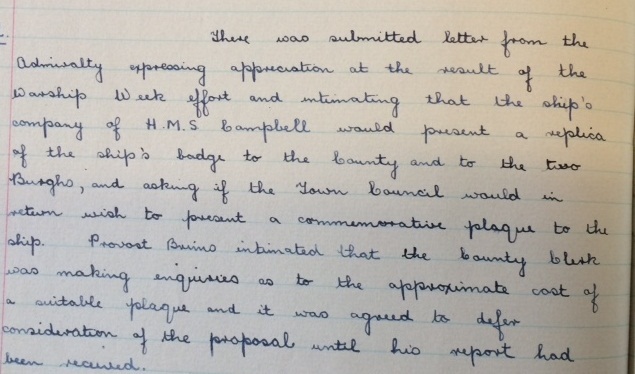 There was submitted letter from the
Admiralty expressing appreciation at the result of the
Warship Week effort and intimating that the ship's
company of H.M.S Campbell would present a replica
of the ship's badge to the County and to the two
Burghs, and asking if the Town Council would in
return wish to present a commemorative plaque to the
ship. Provost intimated that the County Clerk
was making enquiries as to the approximate cost of
a suitable plaque and it was agreed to defer
consideration of the proposal until his report had
been received.